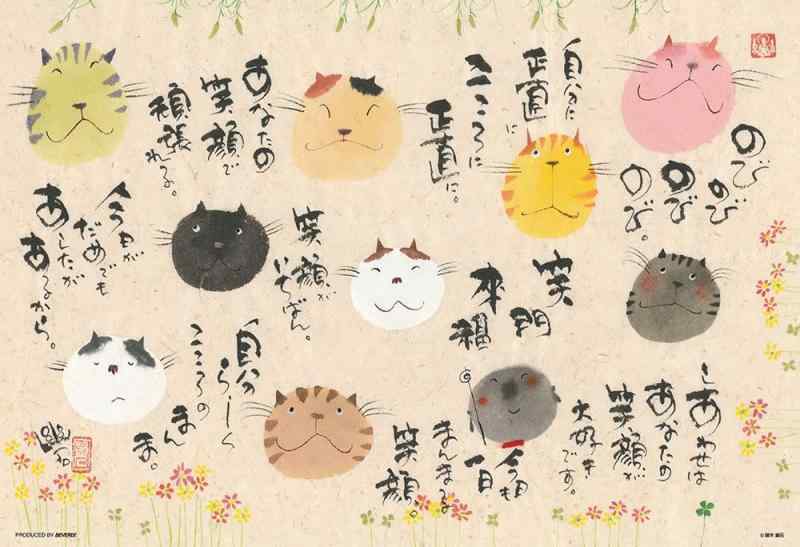 のび
のび
のび
のび。
自分に
正直に
こころに
正直に。
あなたの
笑顔で
頑張
れる。
しあわせは
あなたの
笑顔が
大好き
です。
笑
門
来
福
笑顔が
いちばん。
今日が
だめでも
あしたが
あるから。
今日も
一日
まんまる
笑顔。
自分
らしく
こころの
まんま
ま。
PRODUCED BY BEVERLY